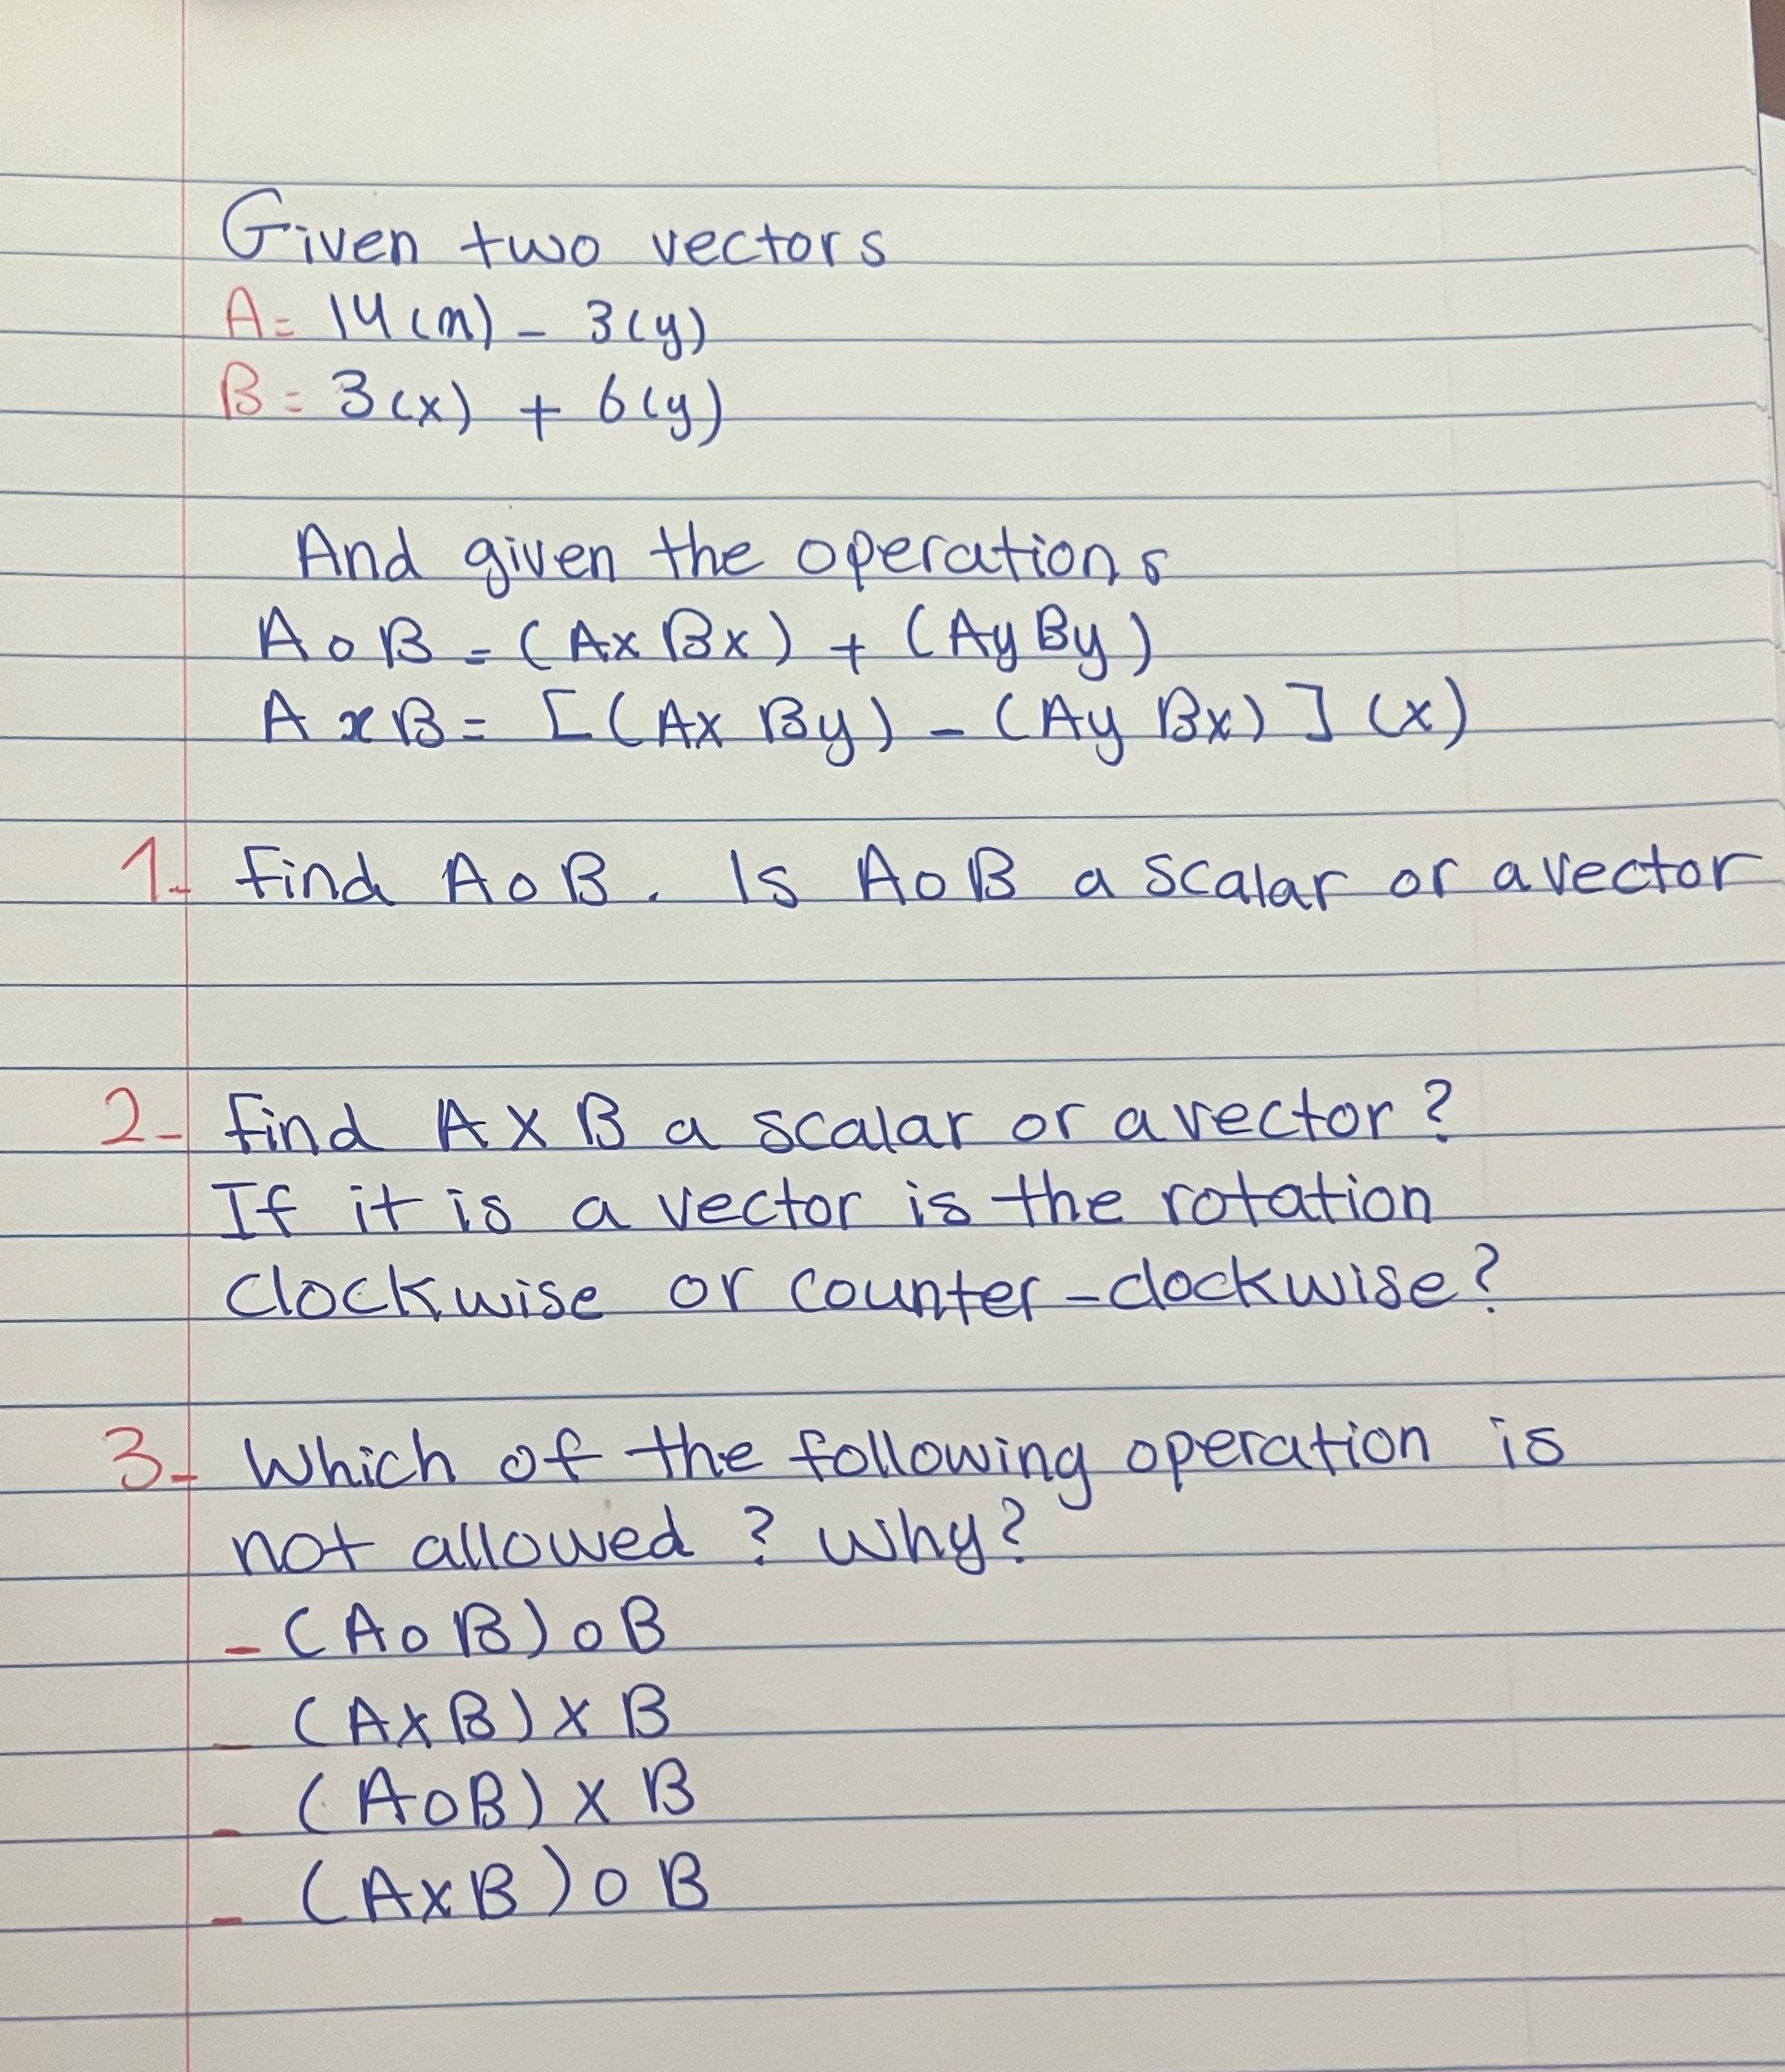 Given two vectors
A = 14(x) - 3(y)
B = 3(x) + 6(y)
And given the operations
A o B = (Ax Bx) + (Ay By)
A x B = [(Ax By) - (Ay Bx)] (x)
1- Find A o B. Is A o B a scalar or a vector
2- Find A x B a scalar or a vector?
If it is a vector is the rotation
clockwise or counter-clockwise?
3- Which of the following operation is
not allowed? Why?
- (A o B) o B
- (A x B) x B
- (A o B) x B
- (A x B) o B